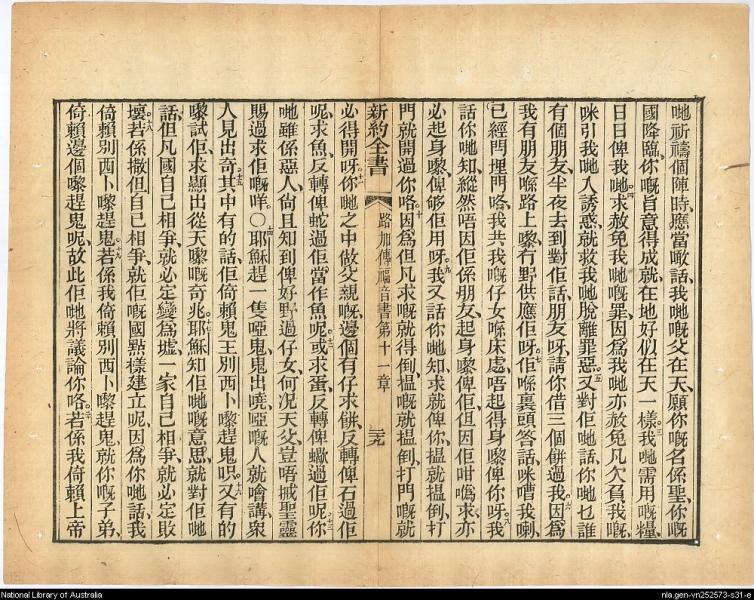 哋祈禱個陣時、應當噉話、我哋嘅父在天、願你嘅名係聖、你嘅
國降臨、你嘅旨意得成就在地好似在天一樣。我哋需用嘅糧、
日日俾我哋。求赦免我哋嘅罪、因爲我哋亦赦免凡欠負我嘅、
咪引我哋入誘惑、就救我哋脫離罪惡。又對佢哋話、你哋乜誰
有個朋友、半夜去到對佢話、朋友呀、請你借三個餅過我。因爲
我有朋友喺路上嚟、冇野供應佢呀。佢喺裏頭答話、咪嘈我喇、
已經門埋門咯、我共我嘅仔女喺床處、唔起得身嚟俾你呀。我
話你哋知、縱然唔因佢係朋友、起身嚟俾佢、但因佢咁噅求、亦
必起身嚟、俾够佢用呀。我又話你哋知、求就俾你、搵就搵倒、打
門就開過你咯。因爲但凡求嘅就得倒、搵嘅就搵倒、打門嘅就
新約全書
路加傳福音書第十一章
必得開呀。你哋之中做父親嘅、邊個有仔求餅、反轉俾石過佢
呢、求魚、反轉俾蛇過佢當作魚呢。或求蛋、反轉俾蠍過佢呢。你
哋雖係惡人、尙且知到俾好野過仔女、何況天父、豈唔揻聖靈
賜過求佢嘅咩。〇耶穌趕一隻啞鬼、鬼出嘵、啞嘅人就噲講、衆
人見出奇。其中有的話、佢倚賴鬼王別西卜嚟趕鬼呮。又有的
嚟試佢、求顯出從天嚟嘅奇兆。耶穌知佢哋嘅意思、就對佢哋
話、但凡國自己相爭、就必定變爲墟、一家自己相爭、就必定敗
壞。若係撒但自己相爭、就佢嘅國點樣建立呢、因爲你哋話我
倚賴別西卜嚟趕鬼。若係我倚賴別西卜嚟趕鬼、就你嘅子弟、
倚賴邊個嚟趕鬼呢、故此佢哋將議論你咯。若係我倚賴上帝
National Library of Australia
nla.gen-vn252573-s31-e